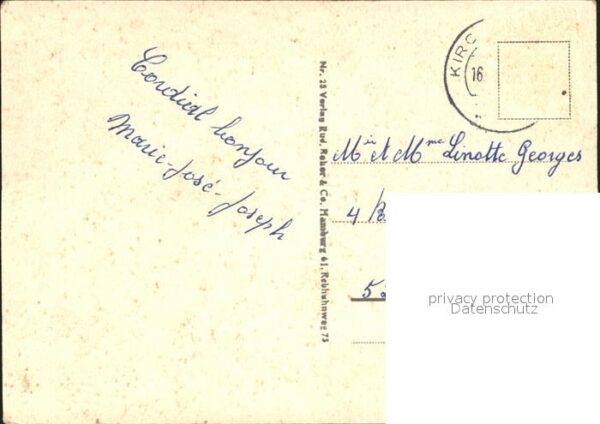 Cordial bonjour
Marie-José-Joseph
Nr. 23 Verlag Rud. Reher & Co. Hamburg 61, Rebhuhnweg 73
KIRC
16
Mr et Mme Linotte Georges
4
5
privacy protection
Datenschutz